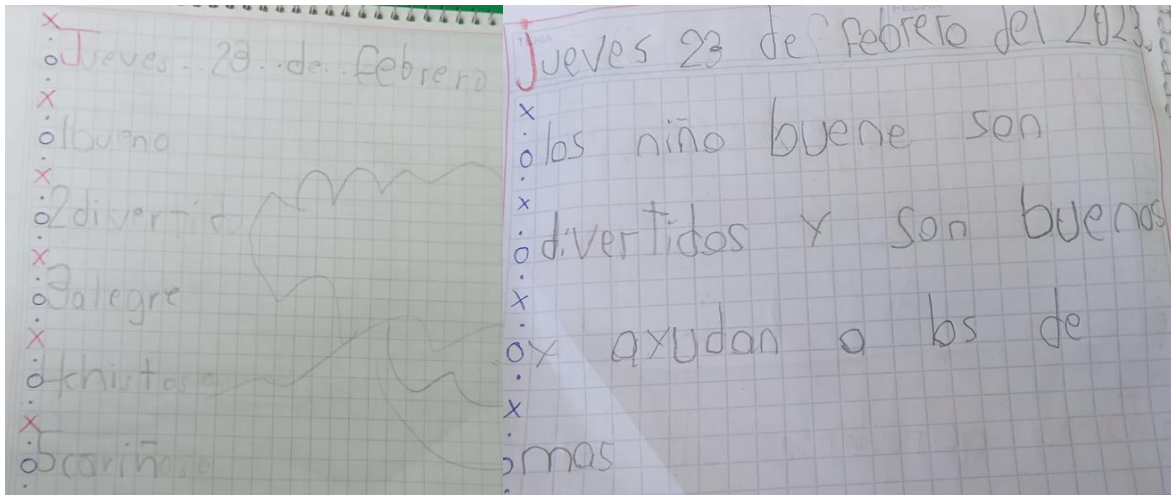 Jueves 23 de febrero
1bueno
2divertid
3alegre
4chistoso
5cariñoso
Jueves 23 de febrero del 2023
los niño buene son
divertidos y son buenos
y ayudan a los de
mas